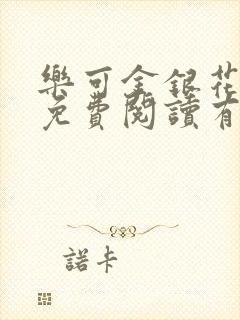 樂可金銀花
免費閱讀有
諾卡